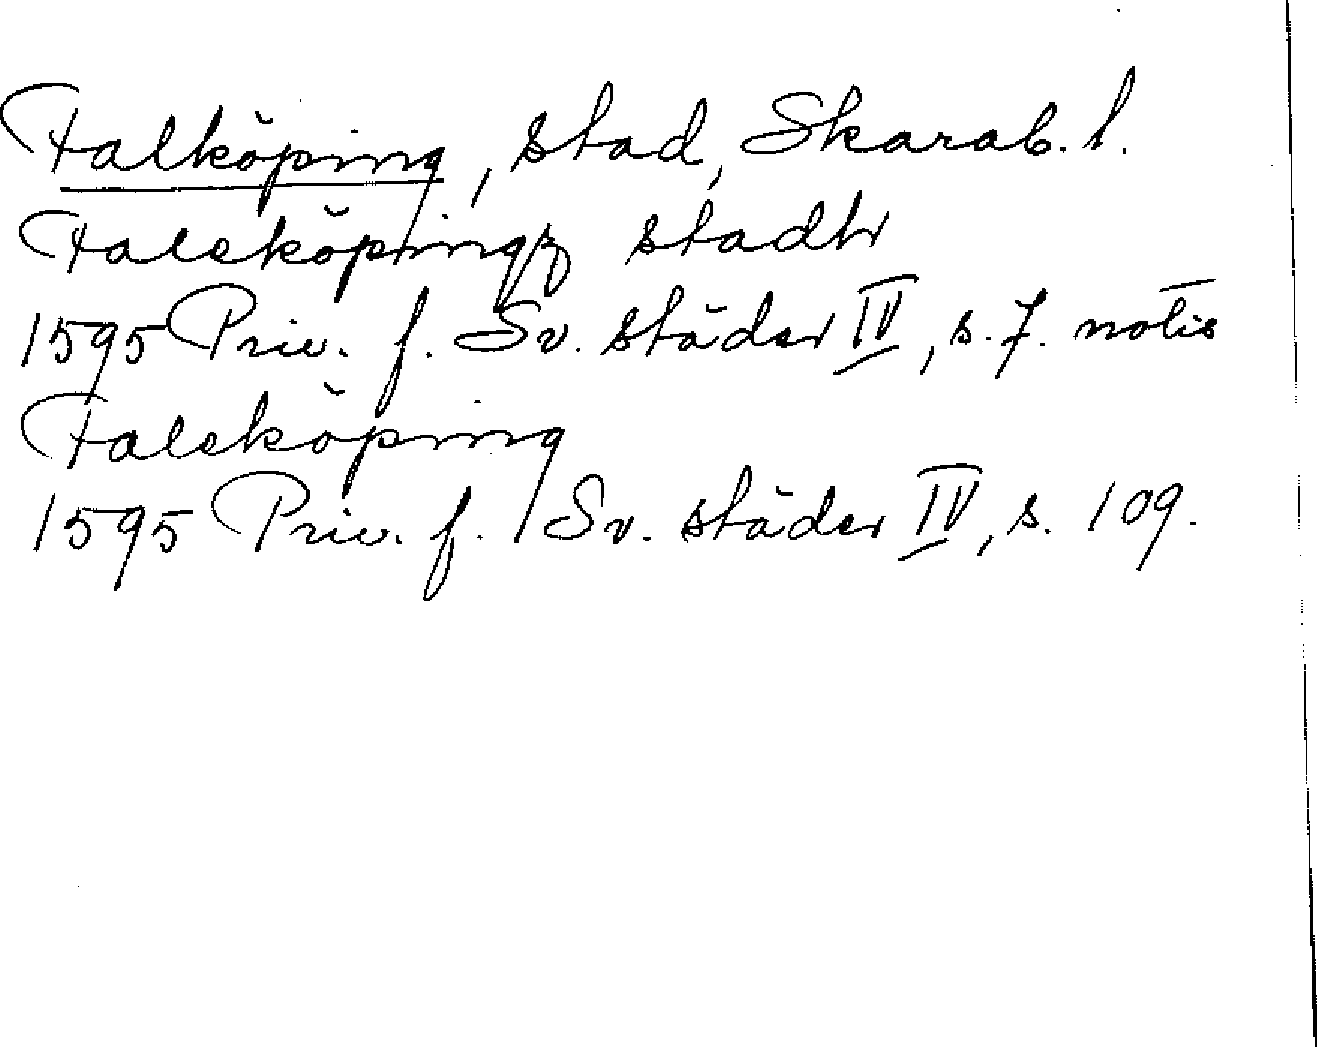 Falköping, stad, Skarab. l.
Faleköpingz stadh
1595 Priv. f. Sv. städer IV, s. 7. notis
Faleköping
1595 Priv. f. Sv. städer IV, s. 109.